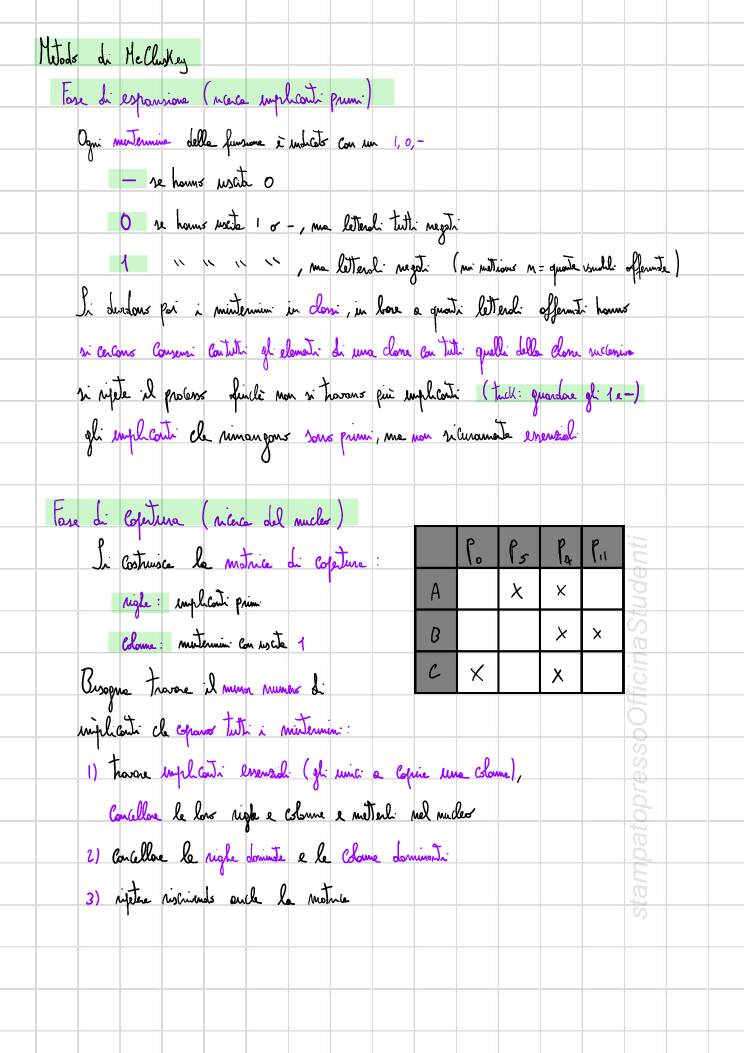 Metodo di McCluskey
Fase di espansione (ricerca implicanti primi)
Ogni mintermine della funzione è indicato con un 1, 0, -
— se hanno uscita 0
0 se hanno uscita 1 o -, ma letterali tutti negati
1 " " " " , ma letterali negati (noi mettiamo n = quante variabili affermate)
Si dividono poi i mintermini in classi, in base a quanti letterali affermati hanno
si cercano consensi con tutti gli elementi di una classe con tutti quelli della classe successiva
si ripete il processo finché non si trovano più implicanti (trick: guardare gli 1 e -)
gli implicanti che rimangono sono primi, ma non sicuramente essenziali
Fase di copertura (ricerca del nucleo)
Si costruisce la matrice di copertura:
righe: implicanti primi
colonne: mintermini con uscita 1
P0 P5 P7 P11
A x x
B x x
C x x
Bisogna trovare il minor numero di
implicanti che coprano tutti i mintermini:
1) trovare implicanti essenziali (gli unici a coprire una colonna),
cancellare le loro righe e colonne e metterli nel nucleo
2) cancellare le righe dominate e le colonne dominanti
3) ripetere riscrivendo anche la matrice
stampatopressoOfficinaStudenti